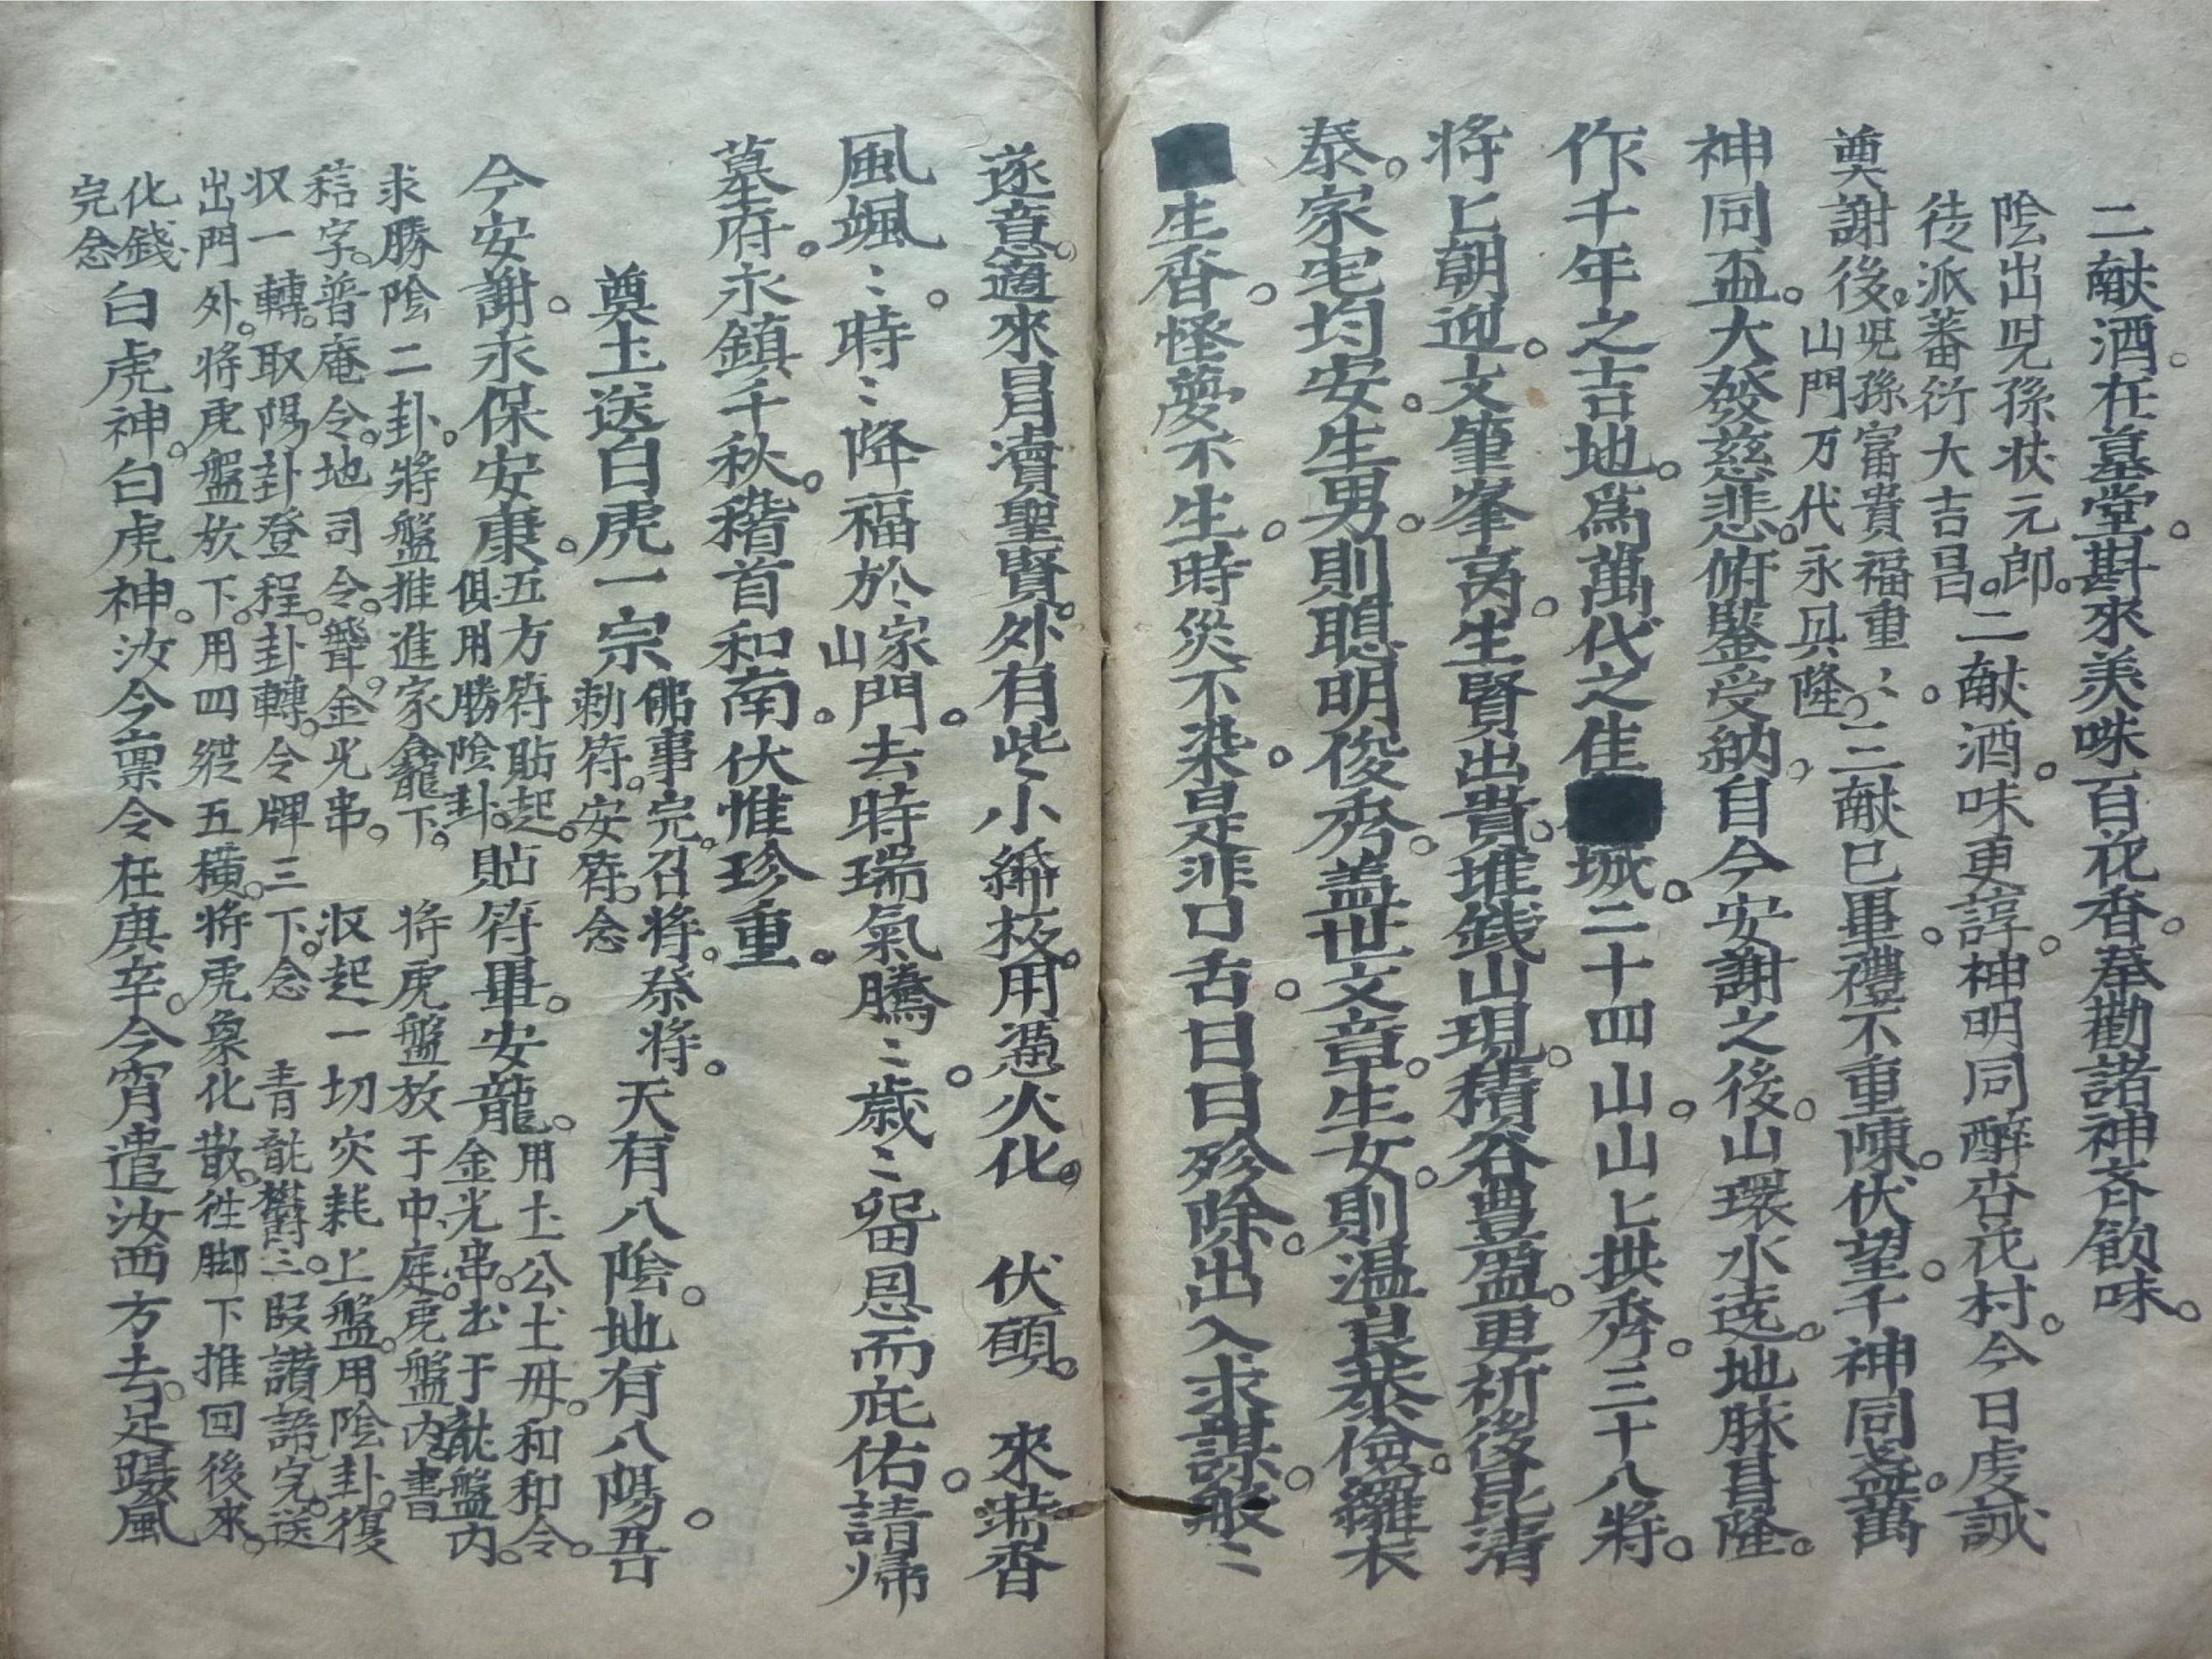 二献酒。在墓堂。斟來美味百花香。奉勸諸神齐飲味。
陰出児孫状元郎。
徒派蕃衍大吉昌。二献酒。味更諄。神明同醉杏花村。今日虔誠
奠謝後。児孫富貴福重〻。
山門万代永具隆。三献已畢。禮不重陳。伏望。千神同盞。萬
神同盃。大發慈悲。俯鑒受納。自今安謝之後。山環水遶。地脉昌隆。
作千年之吉地。為萬代之佳城。二十四山。山山上拱秀。三十八將。
將上朝迎。文筆峯高。生賢出貴。堆錢山現。積谷豊盈。更祈後昆清
泰。家宅均安。生男。則聰明俊秀。盖世文章。生女。則温良恭儉。羅衣
生香。怪夢不生。時災不染。是非口舌。日日殄除。出入求謀。般〻
遂意。適來冒瀆聖賢。外有些小紙格。用憑火化。 伏願。 來時香
風颯〻。時〻降福於家山門。去時瑞氣騰〻。歲〻留恩而庇佑。請帰
墓府。永鎮千秋。稽首和南。伏惟珍重。
奠土送白虎一宗 佛事完。召將。祭將。
勅符。安符。念 天有八陰。地有八陽。吾
今安謝。永保安康。五方符貼起。
俱用勝陰卦。貼符畢。安龍。用土公土毋。和和令。
金光串。出于龍盤内。
求勝陰二卦。將盤推進家龕下。 将虎盤放于中庭。虎盤内書
䅵字。普庵令。地司令。聳。金光串。 収起一切灾耗上盤。用陰卦。復
収一轉。取陽卦登程。卦轉。令牌三下。念 青龍欝三段讃語完。送
出門外。将虎盤放下。用四縦五橫。將虎象化散。徃脚下推回後來。
化錢
完念 白虎神。白虎神。汝今禀令在庚辛。今宵遣汝西方去。足躡風